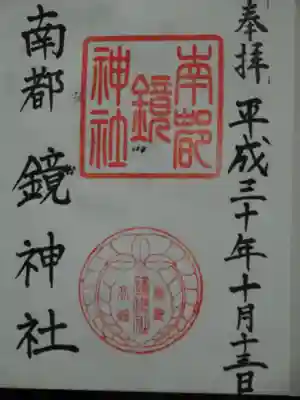 奉拝 平成三十年十月十三日
南都
鏡
神社
南都鏡神社